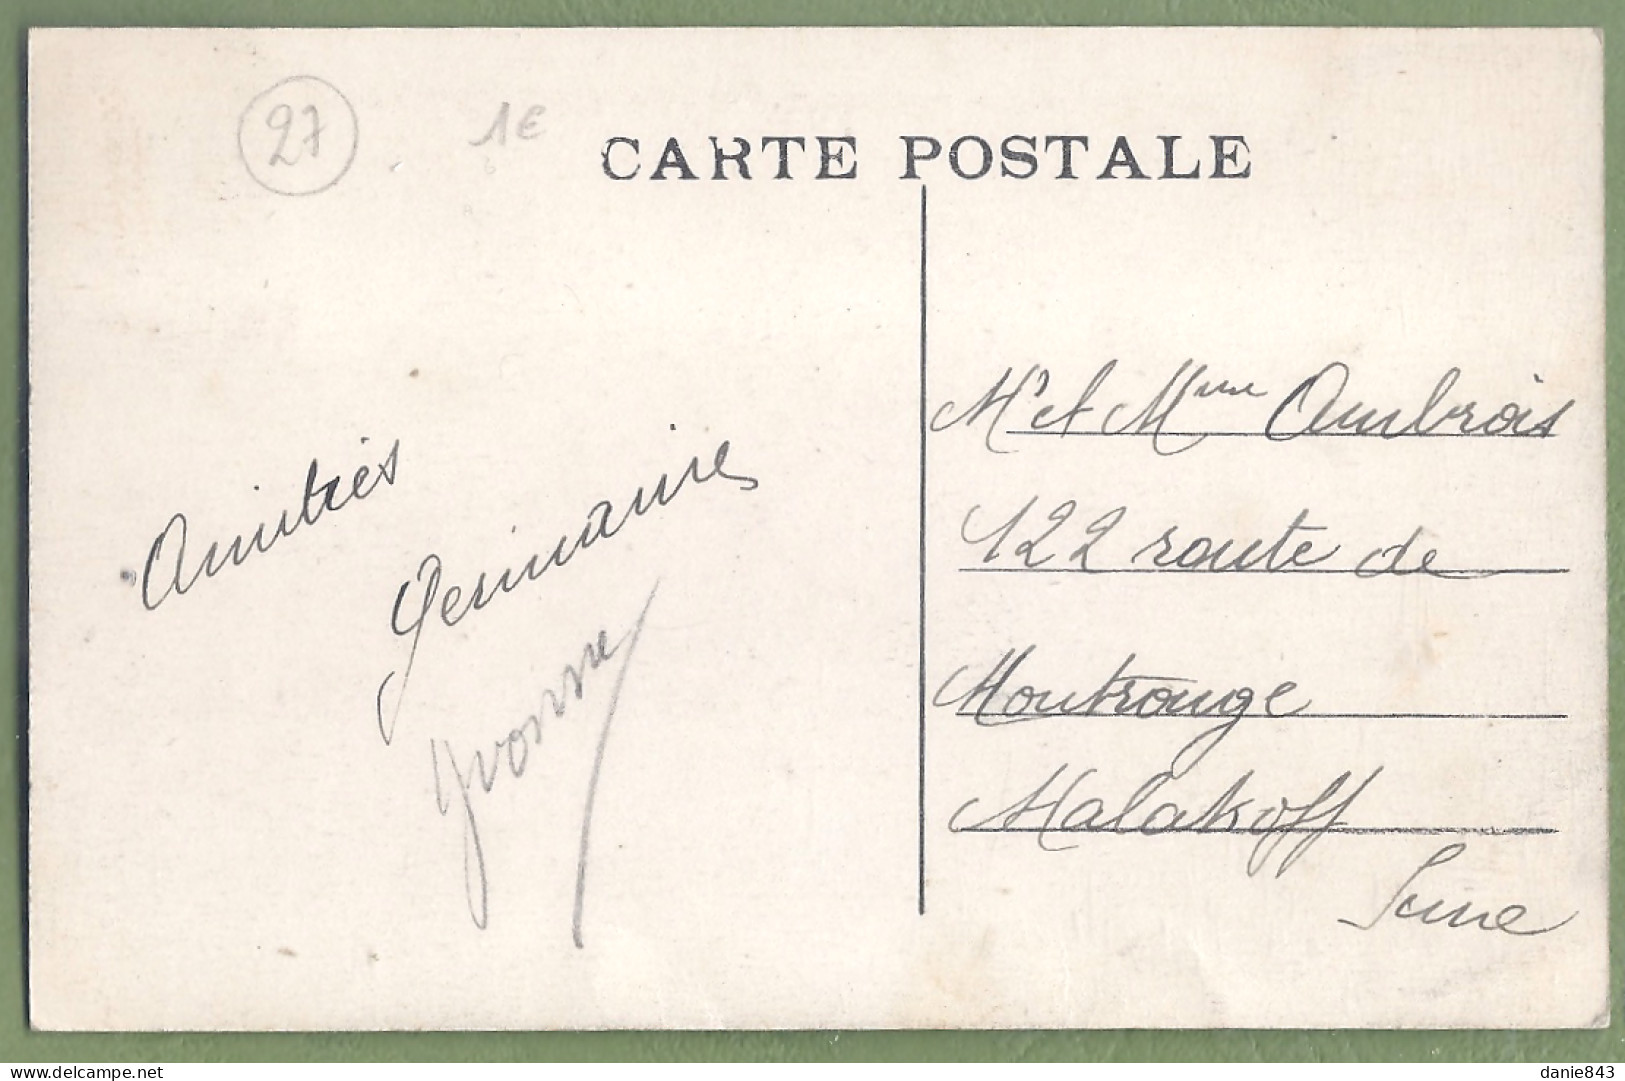 27
1€
CARTE POSTALE
Amitiés
Germaine
Yvonne
Mr et Mme Ambrois
122 route de
Montrouge
Malakoff
Seine
delcampe.net
danie843